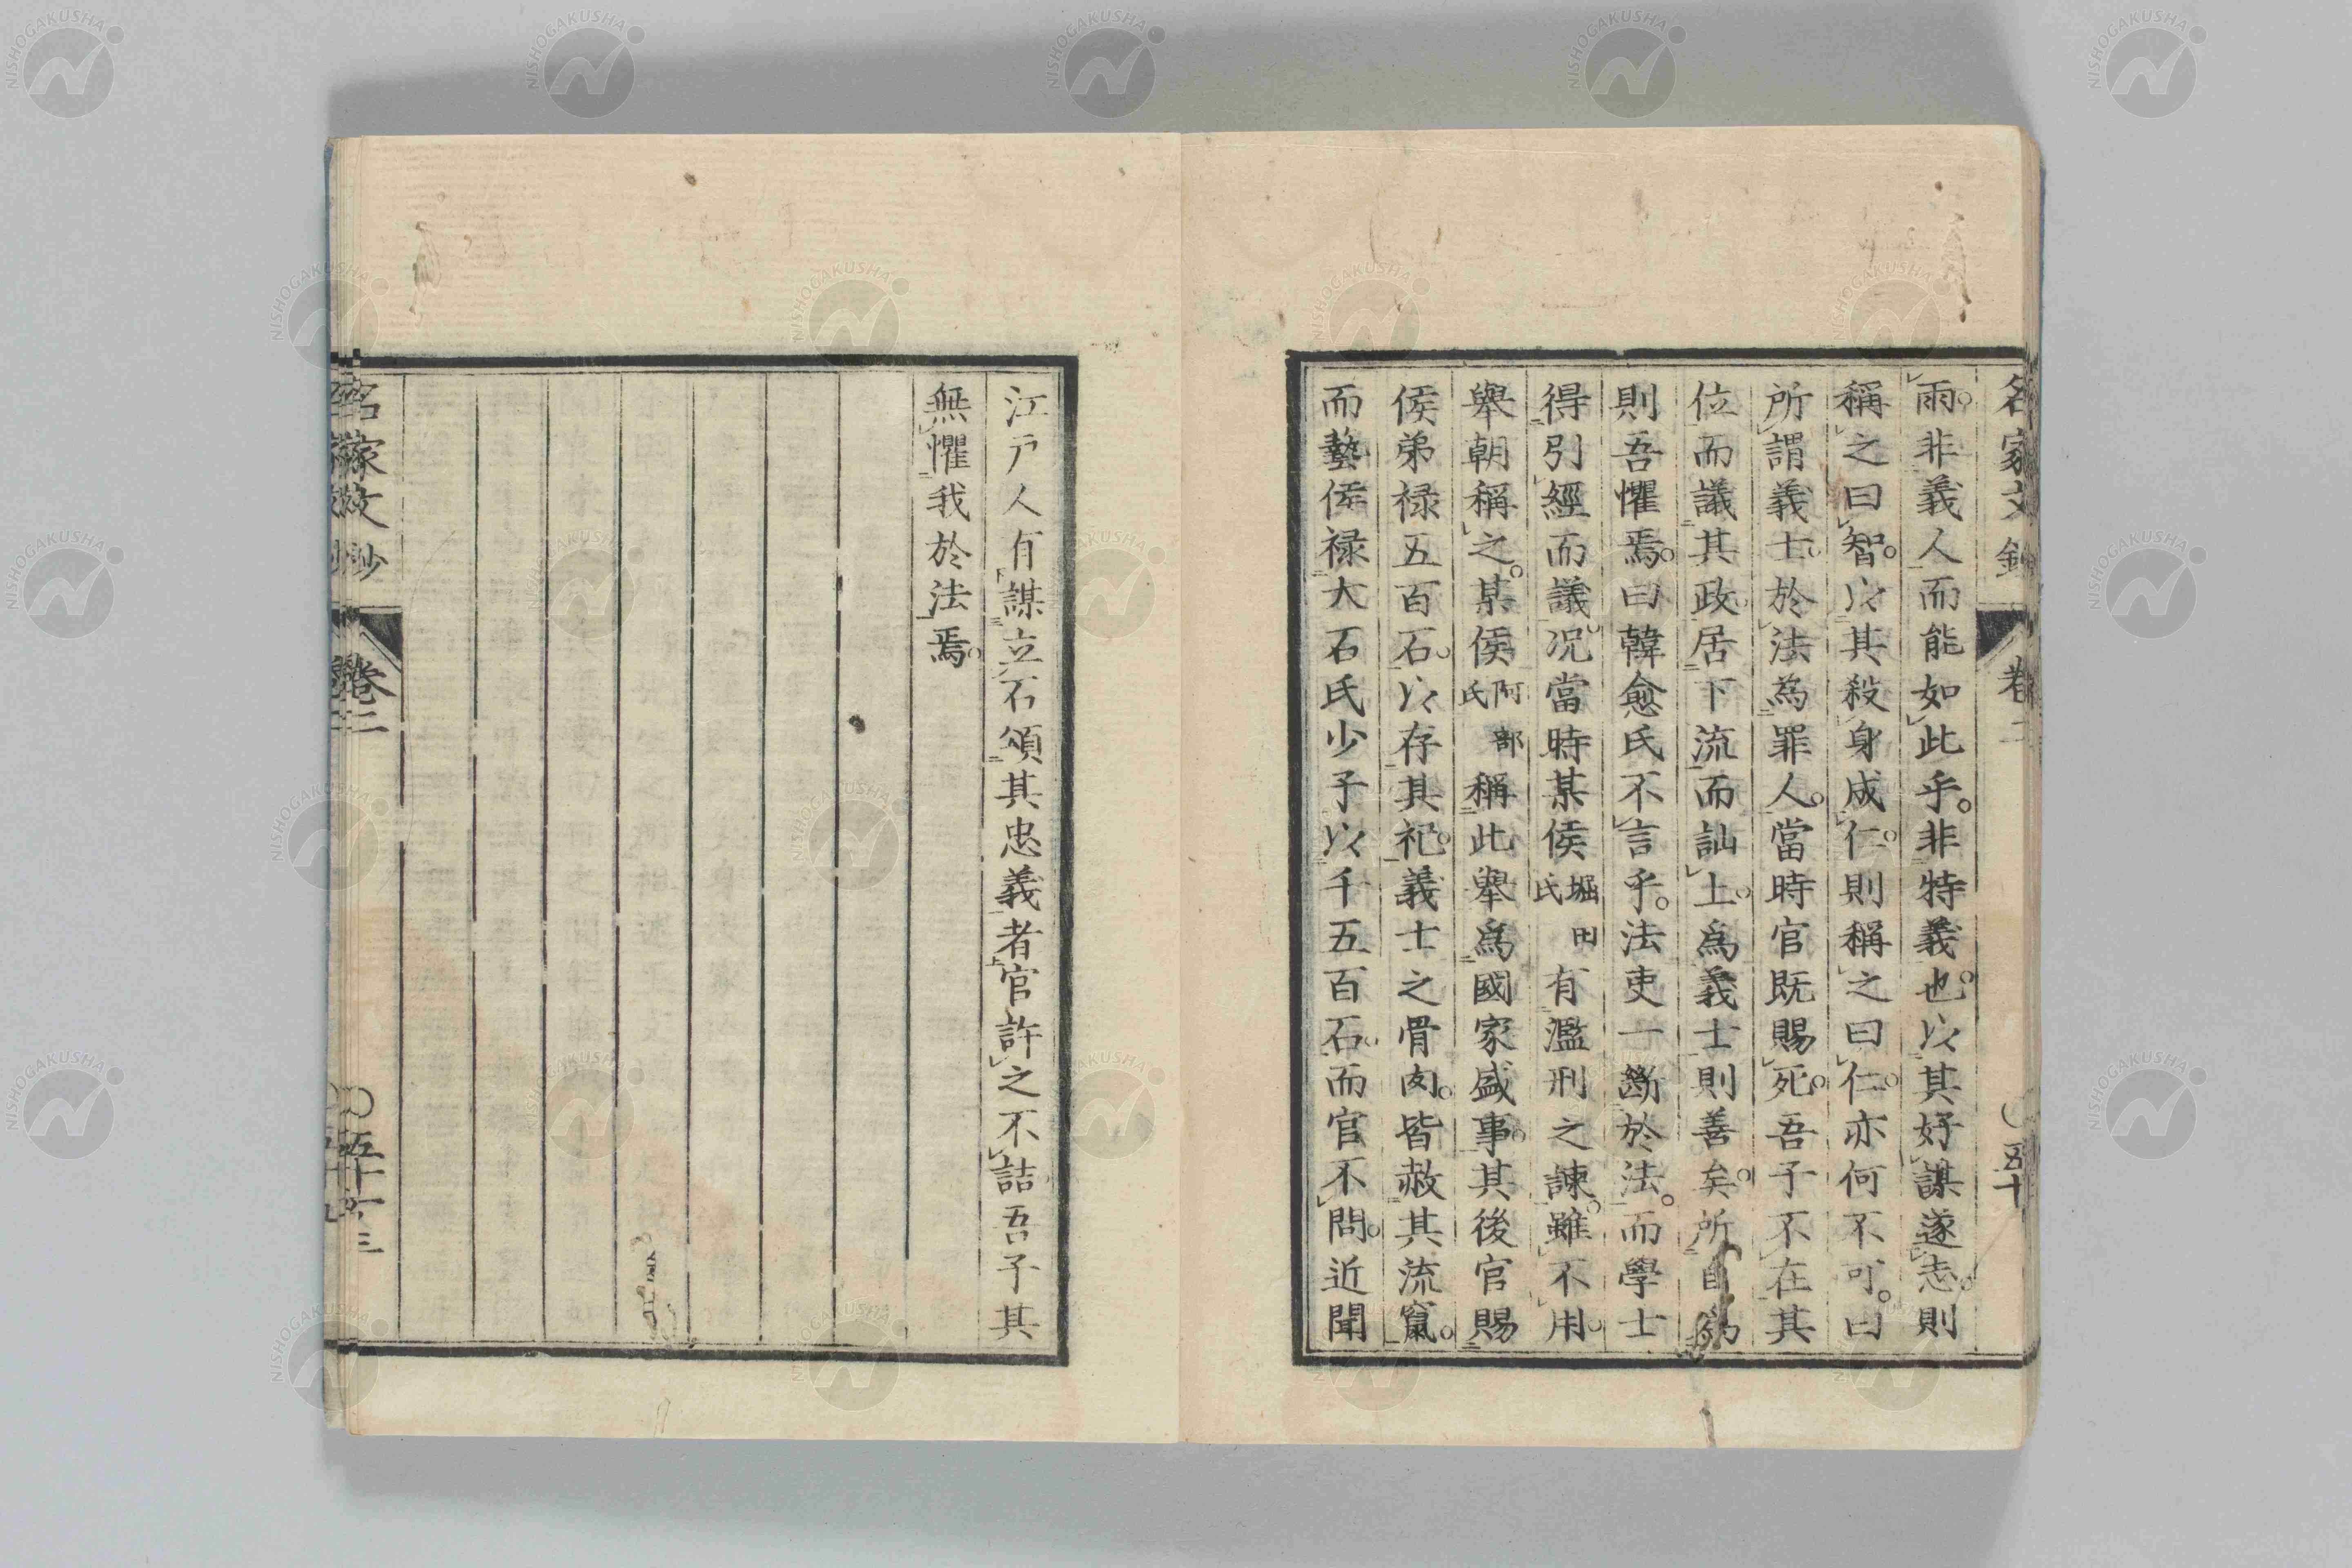 名家文鈔 卷二 〇五十
雨。非義人而能如此乎。非特義也。以其好謀遂志。則
稱之曰智。以其殺身成仁。則稱之曰仁。亦何不可。曰
所謂義士。於法為罪人。當時官既賜死。吾子不在其
位而議其政。居下流而訕上。爲義士則善矣。所自爲
則吾懼焉。曰韓愈氏不言乎。法吏一斷於法。而學士
得引經而議。况當時某侯堀田氏有濫刑之諫。雖不用。
舉朝稱之。某侯阿部氏稱此舉爲國家盛事。其後官賜
侯弟祿五百石。以存其祀。義士之骨肉。皆赦其流竄。
而藝侯祿大石氏少子以千五百石。而官不問。近聞
江戶人有謀立石頌其忠義者官許之不詰吾子其
無懼我於法焉。
名家文鈔 卷二
NISHOGAKUSHA